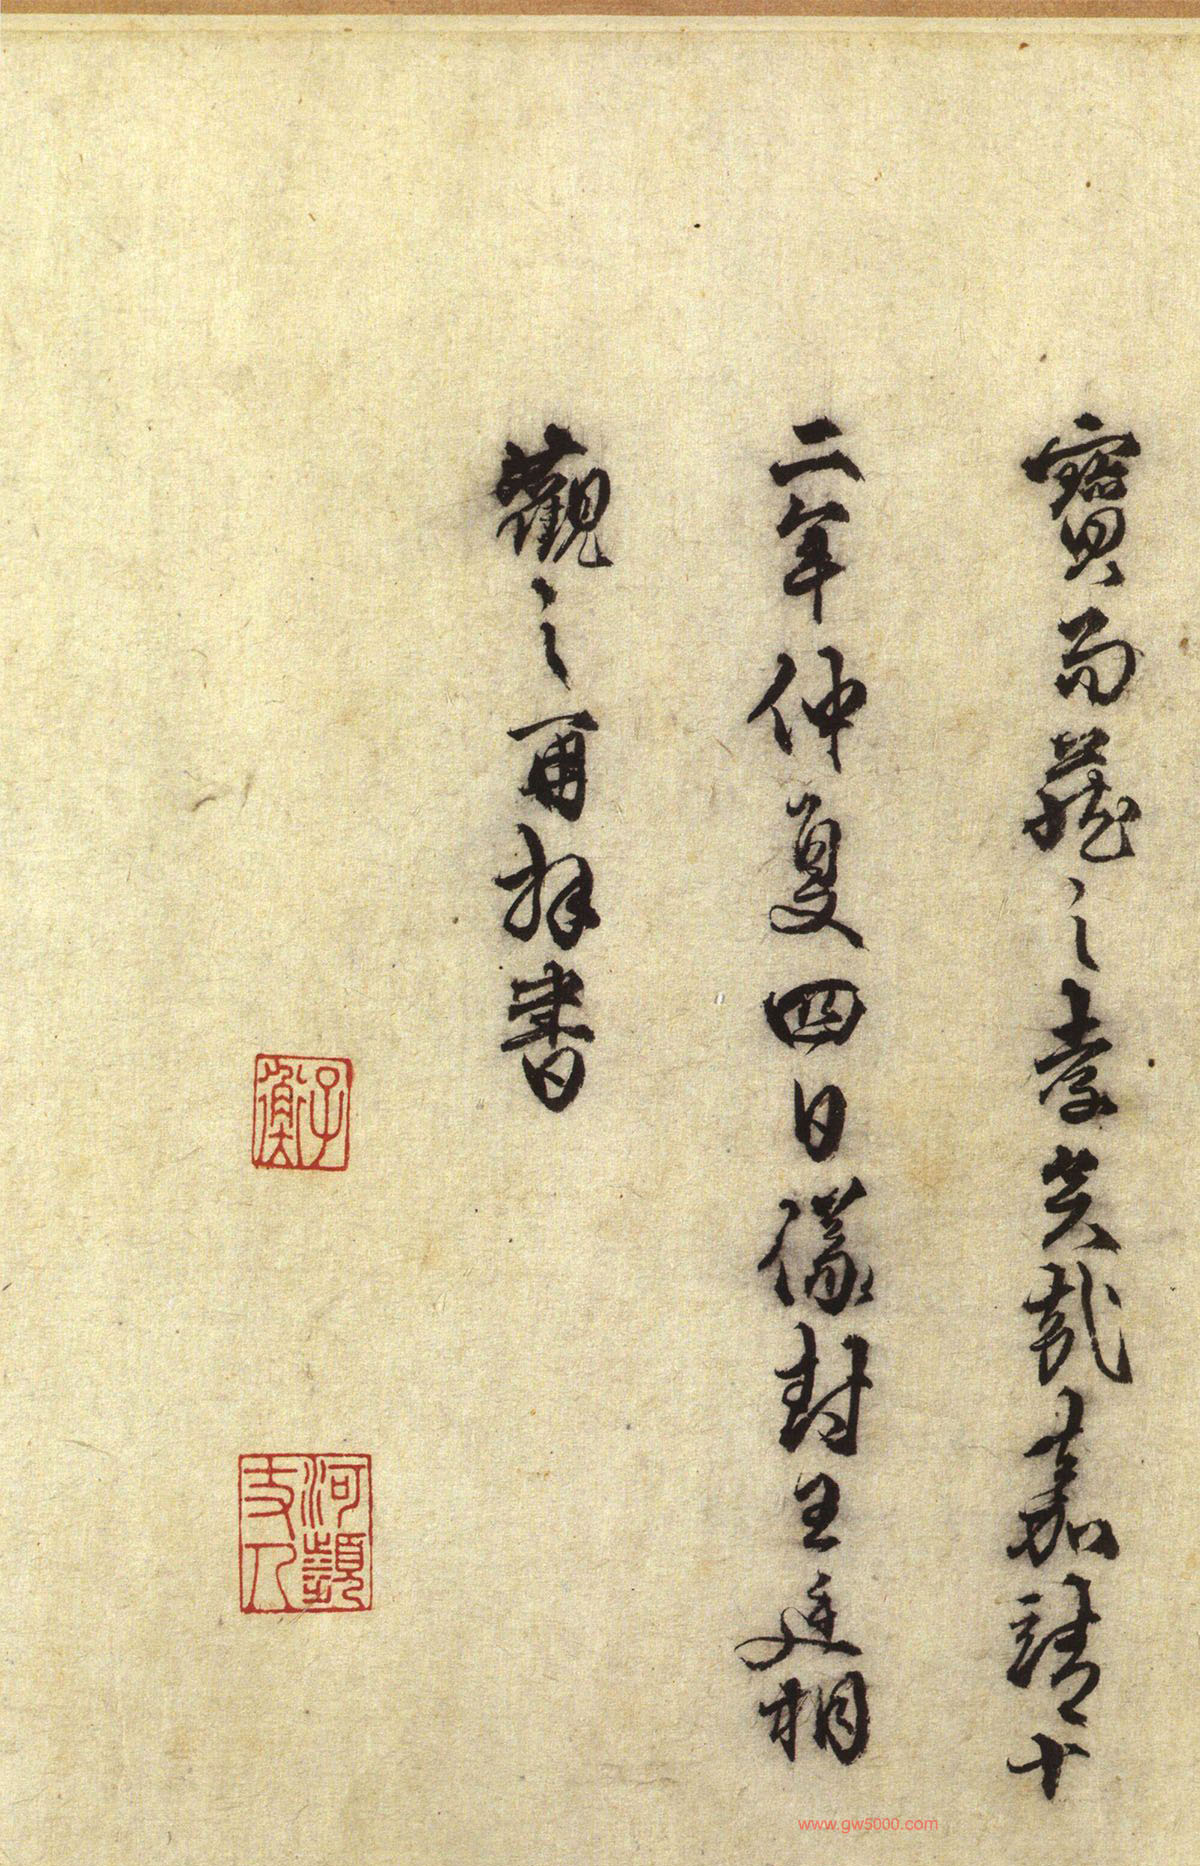 寶而藏之孝矣哉嘉靖十
二年仲夏四日儀封王廷相
觀之再拜書
子衡
河濵丈人
www.gw5000.com